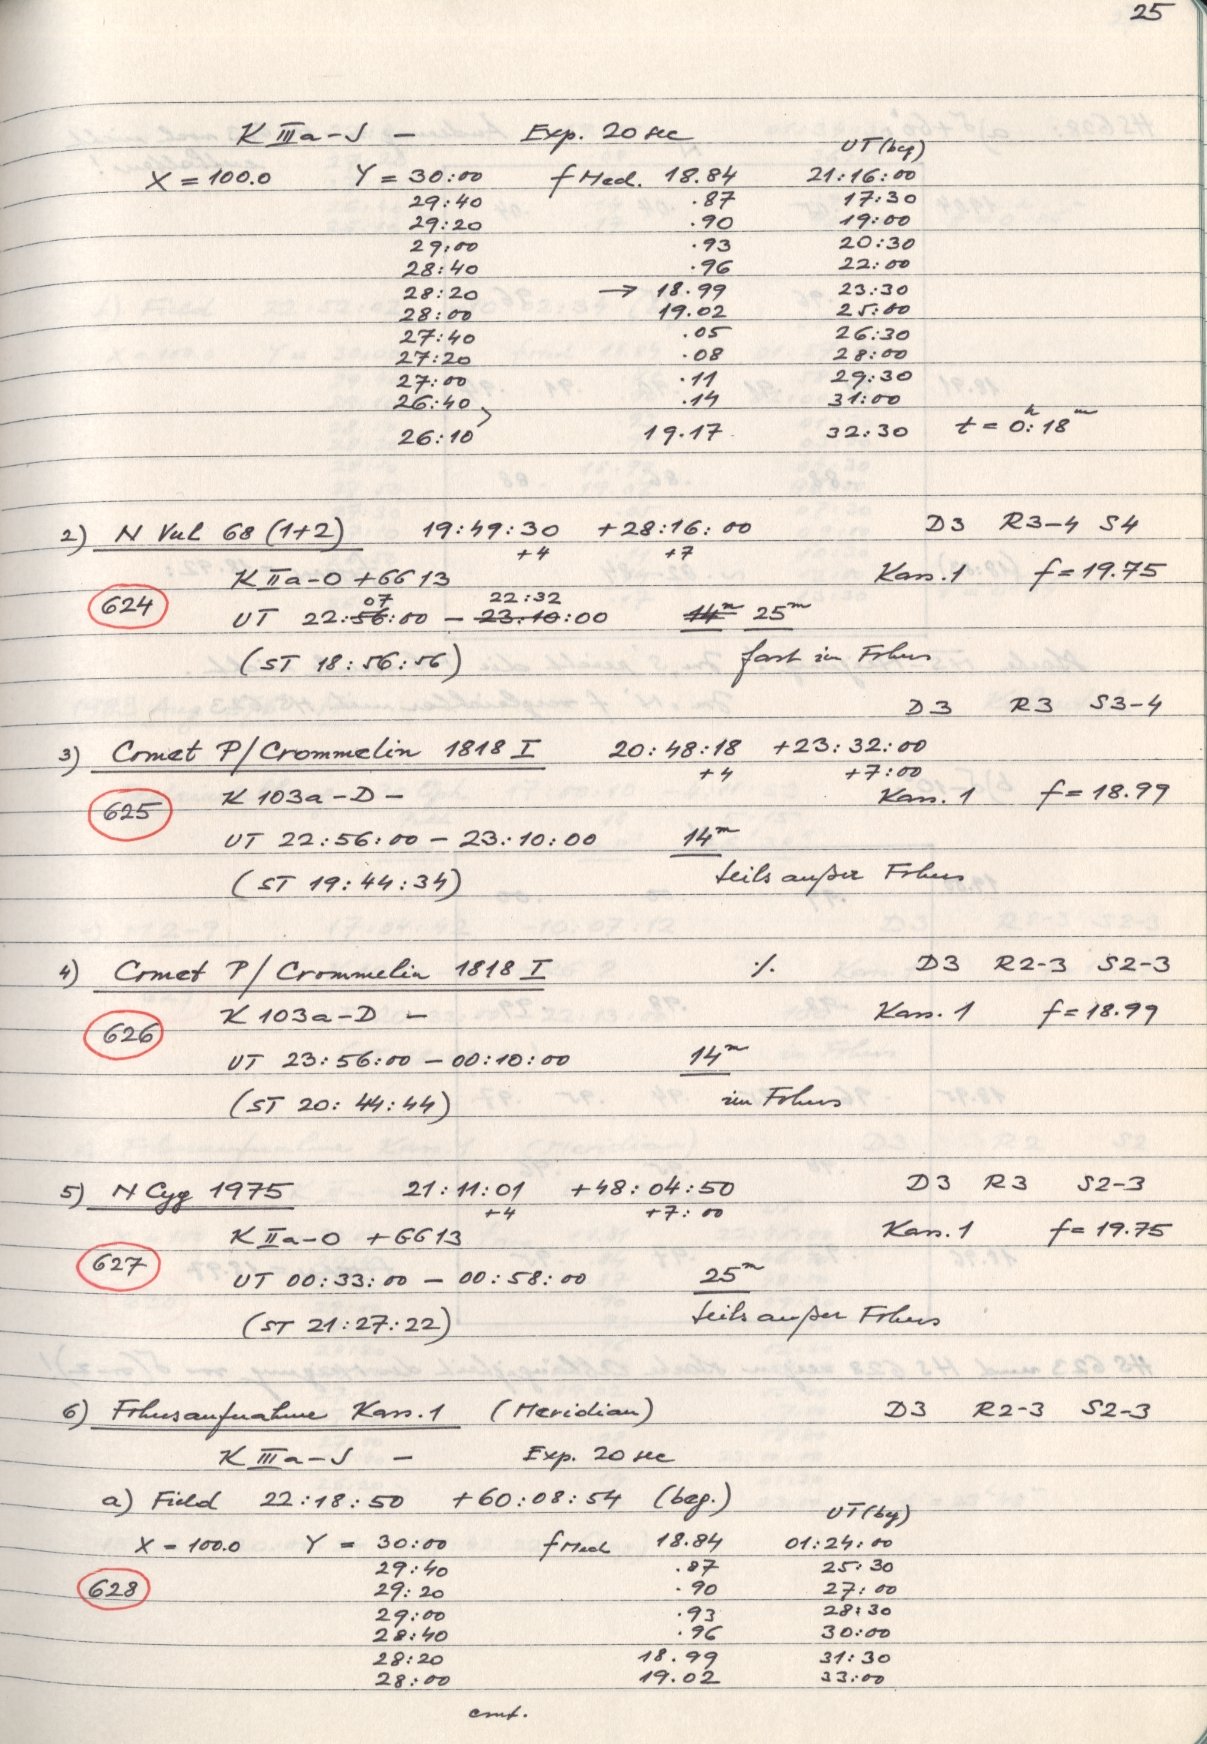 25
K IIIa-J - Exp. 20 sec
UT (beg)
X = 100.0 Y = 30:00 f Med. 18.84 21:16:00
29:40 .87 17:30
29:20 .90 19:00
29:00 .93 20:30
28:40 .96 22:00
28:20 → 18.99 23:30
28:00 19.02 25:00
27:40 .05 26:30
27:20 .08 28:00
27:00 .11 29:30
26:40 .14 31:00
26:10 19.17 32:30 t = 0h:18m
2) N Vul 68 (1+2) 19:49:30 +28:16:00 D3 R3-4 S4
+4 +7
K IIa-O + GG13 Kass.1 f = 19.75
07 22:32
624 UT 22:56:00 - 23:10:00 14m 25m
(ST 18:56:56) fast im Fokus
D3 R3 S3-4
3) Comet P/Crommelin 1818 I 20:48:18 +23:32:00
+4 +7:00
625 K 103a-D - Kass.1 f = 18.99
UT 22:56:00 - 23:10:00 14m
(ST 19:44:34) teils außer Fokus
4) Comet P/Crommelin 1818 I ٪ D3 R2-3 S2-3
K 103a-D - Kass.1 f = 18.99
626 UT 23:56:00 - 00:10:00 14m
(ST 20:44:44) im Fokus
5) N Cyg 1975 21:11:01 +48:04:50 D3 R3 S2-3
+4 +7:00
K IIa-O + GG13 Kass.1 f = 19.75
627 UT 00:33:00 - 00:58:00 25m
(ST 21:27:22) teils außer Fokus
6) Fokusaufnahme Kass.1 (Meridian) D3 R2-3 S2-3
K IIIa-J - Exp. 20 sec
a) Field 22:18:50 +60:08:54 (beg.)
UT (beg)
X = 100.0 Y = 30:00 f Med 18.84 01:24:00
29:40 .87 25:30
628 29:20 .90 27:00
29:00 .93 28:30
28:40 .96 30:00
28:20 18.99 31:30
28:00 19.02 33:00
cont.